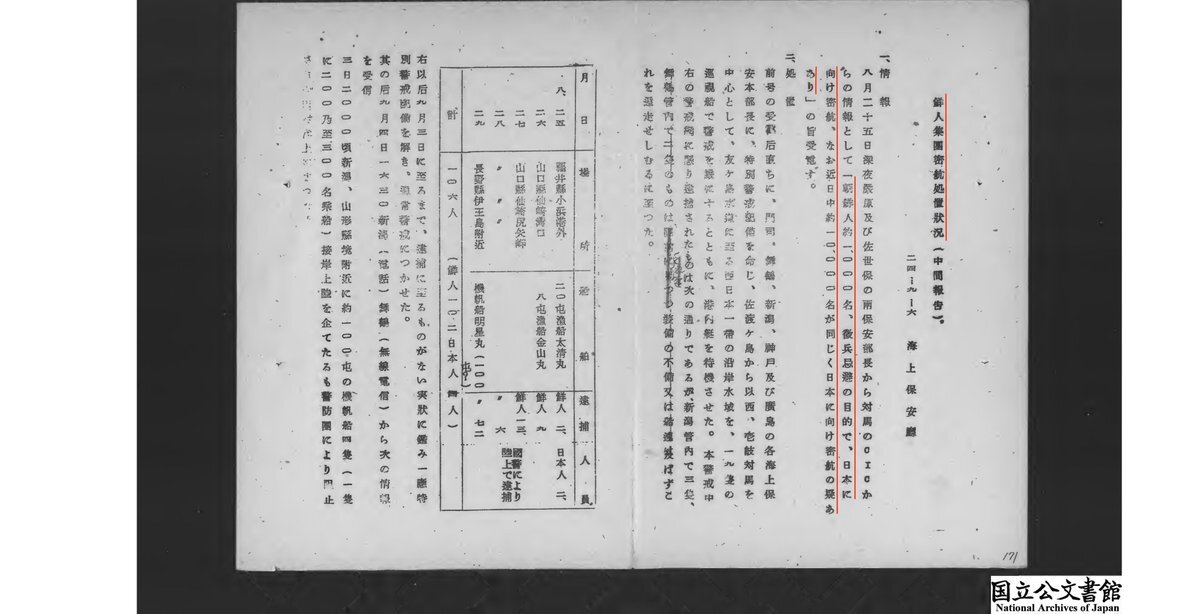 鮮人集團密航処置狀況(中間報告)。
二四-九-六 海上保安廳
一、情報
八月二十五日深夜嚴原及び佐世保の兩保安部長から対馬のCICか
らの情報として「朝鮮人約一〇〇〇名、徴兵忌避の目的で、日本に
向け密航、なお近日中約一〇〇〇〇名が同じく日本に向け密航の疑あ
あり」の旨受電す。
二、処置
前号の受報后直ちに、門司、舞鶴、新潟、神戸及び廣島の各海上保
安本部長に、特別警戒配備を命じ、佐渡ヶ島から以西、壱岐対馬を
中心として、友ヶ島水道に至る西日本一帯の沿岸水域を、一九隻の
巡視船で警戒を嚴にするとともに、港內艇を待機させた。本警戒中
右の警戒網に依り逮捕されたものは次の通りであるが、新潟管內で三隻、
舞鶴管內で二隻のものは装備の不備又は船速及ばずこ
れを逸走せしむるに至つた。
月日 場所 船舶 逮捕人員
八、二五 福井縣小浜港外 二〇屯漁船太清丸 鮮人 二、日本人 二、
二六 山口縣仙崎港口 八屯漁船金山丸 鮮人 九
二七 山口縣仙崎尻矢岬 鮮人一三、 國警により
二八 〃 〃 〃 六 陸上で逮捕
二九 長崎縣伊王島附近 機帆船明星丸(一〇〇屯) 〃 七二
計 一〇六人(鮮人一〇二日本人 四人)
右以后九月三日に至るまで、逮捕に至るものがない実狀に鑑み一應特
別警戒配備を解き、通常警戒につかせた。
其の后九月四日一六三〇新潟(電話)舞鶴(無線電信)から次の情報
を受信
三日二〇〇〇頃新潟、山形縣境附近に約一〇〇屯の機帆船四隻(一隻
に二〇〇乃至三〇〇名乘船)接岸上陸を企てたるも警防團により阻止
171
国立公文書館
National Archives of Japan